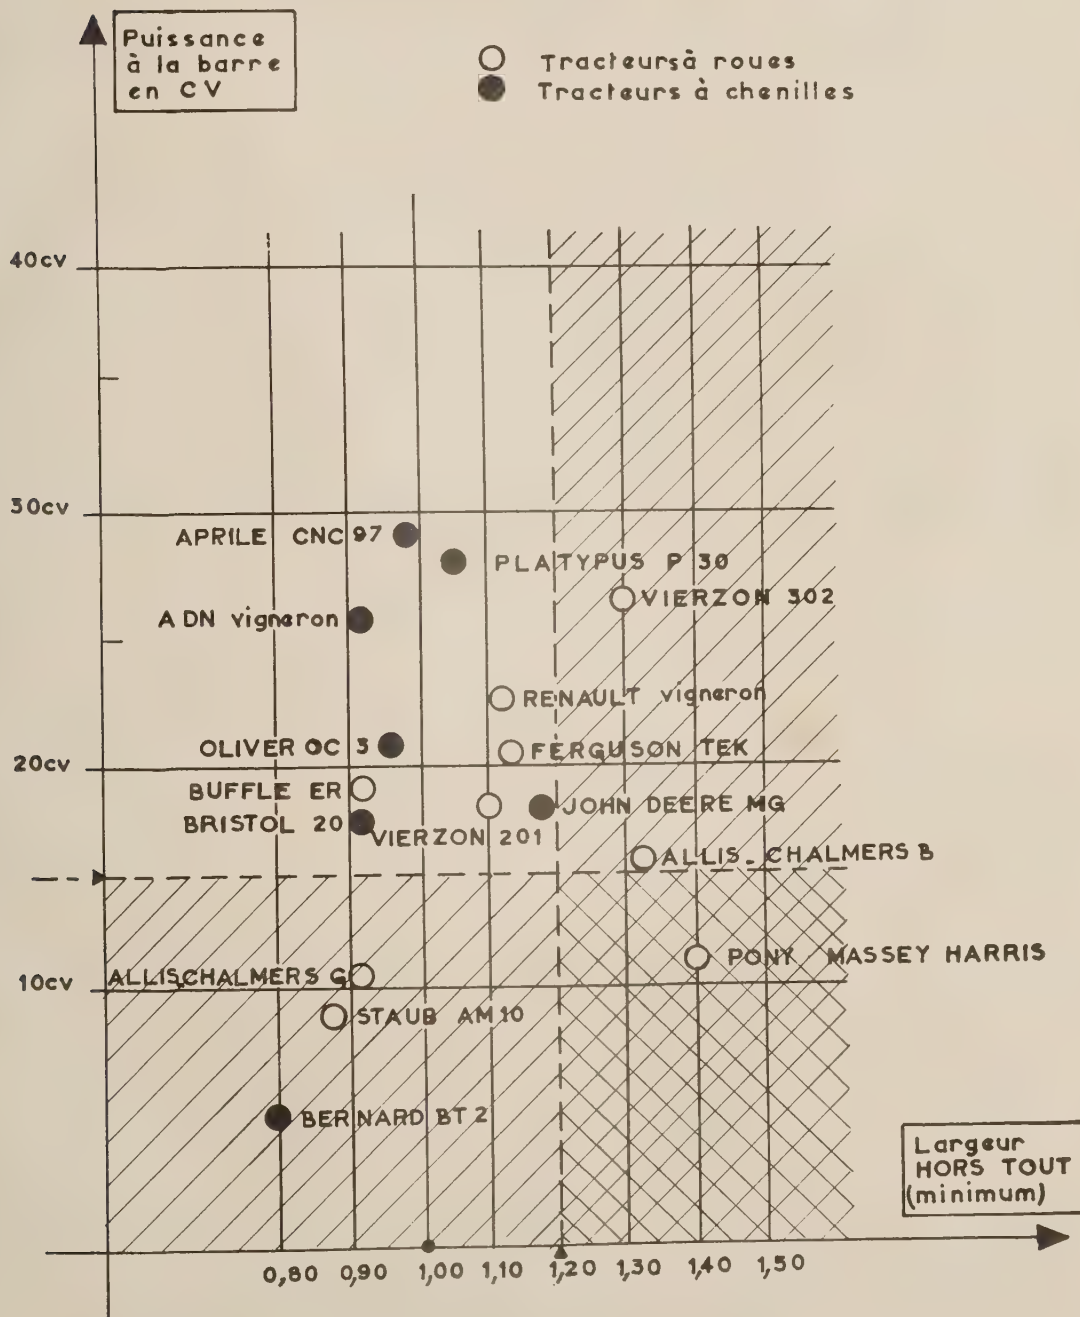 Puissance
à la barre
en CV
Tracteurs à roues
Tracteurs à chenilles
40cv
30cv
APRILE CNC 97
PLATYPUS P 30
VIERZON 302
ADN vigneron
RENAULT vigneron
OLIVER OC 3
FERGUSON TEK
20cv
BUFFLE ER
JOHN DEERE MG
BRISTOL 20
VIERZON 201
ALLIS-CHALMERS B
PONY MASSEY HARRIS
10cv
ALLISCHALMERS G
STAUB AM10
BERNARD BT 2
Largeur
HORS TOUT
(minimum)
0,80 0,90 1,00 1,10 1,20 1,30 1,40 1,50